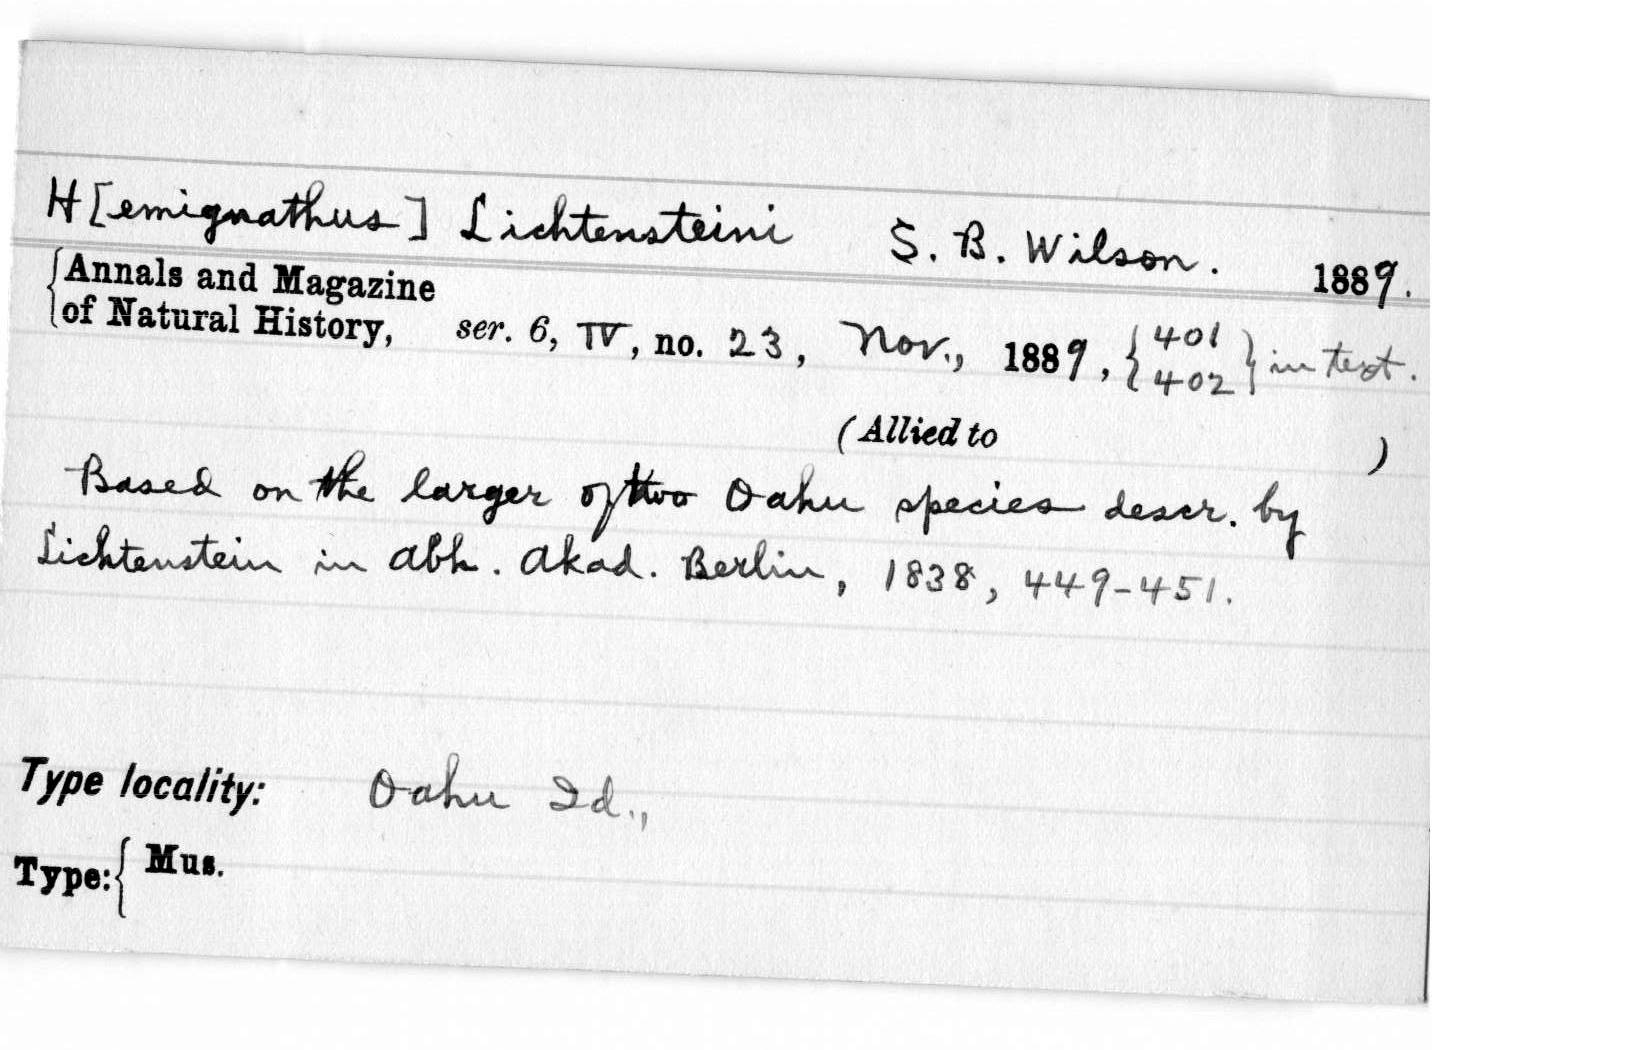 H[emignathus] Lichtensteini S. B. Wilson. 1889.
{Annals and Magazine
of Natural History, ser. 6, IV, no. 23, Nov., 1889, {401
402} in text.
(Allied to )
Based on the larger of two Oahu species descr. by
Lichtenstein in Abh. Akad. Berlin, 1838, 449-451.
Type locality: Oahu Id.,
Type:{ Mus.